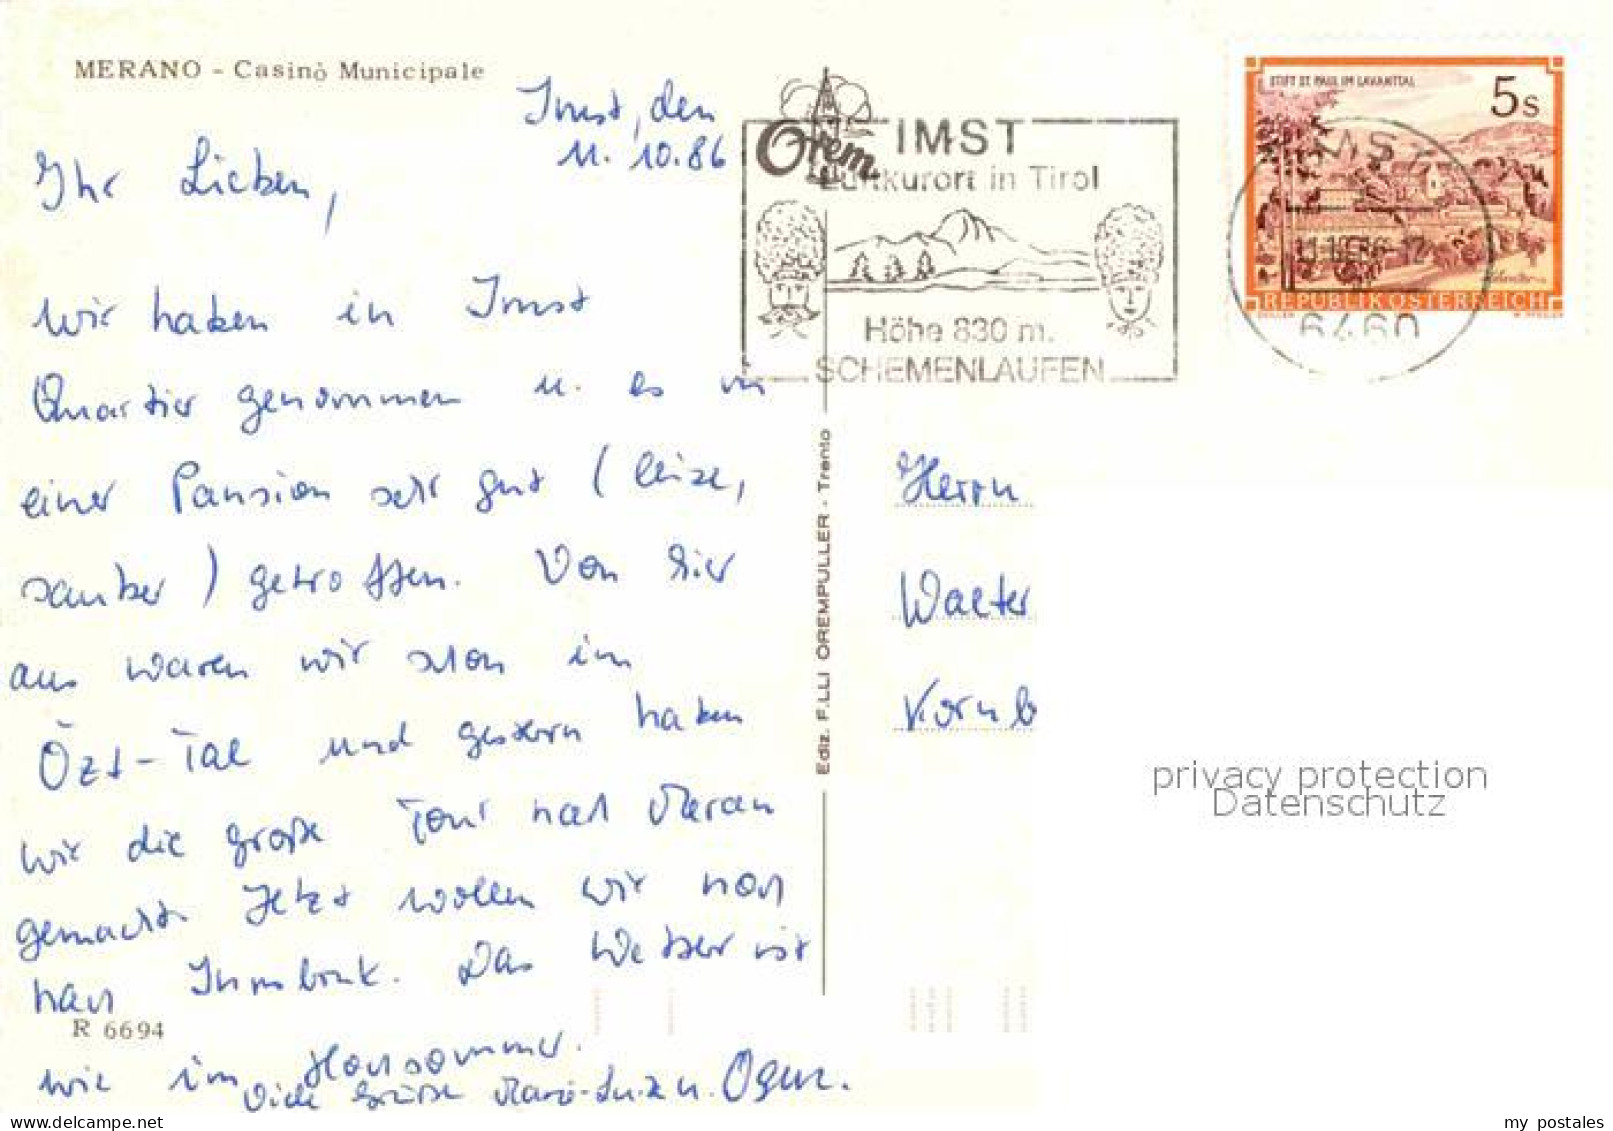 MERANO - Casinò Municipale
Imst, den
11. 10. 86
Ihr Lieben,
wir haben in Imst
Quartier genommen u. es in
einer Pansion sehr gut (leise,
sauber) getroffen. Von hier
aus waren wir schon im
Özt-Tal und gestern haben
wir die große Tour nach Meran
gemacht. Jetzt wollen wir noch
nach Innsbruck. Das Wetter ist
R 6694
wie im Hochsommer.
Viele Grüße
Orem
IMST
Luftkurort in Tirol
Höhe 830 m.
SCHEMENLAUFEN
STIFT ST. PAUL IM LAVANTTAL
5s
REPUBLIK ÖSTERREICH
IMST
11.10.86-12
6460
Ediz. F.LLI OREMPULLER - Trento
Herrn
Walter
Kornb
privacy protection
Datenschutz
delcampe.net
my_postales